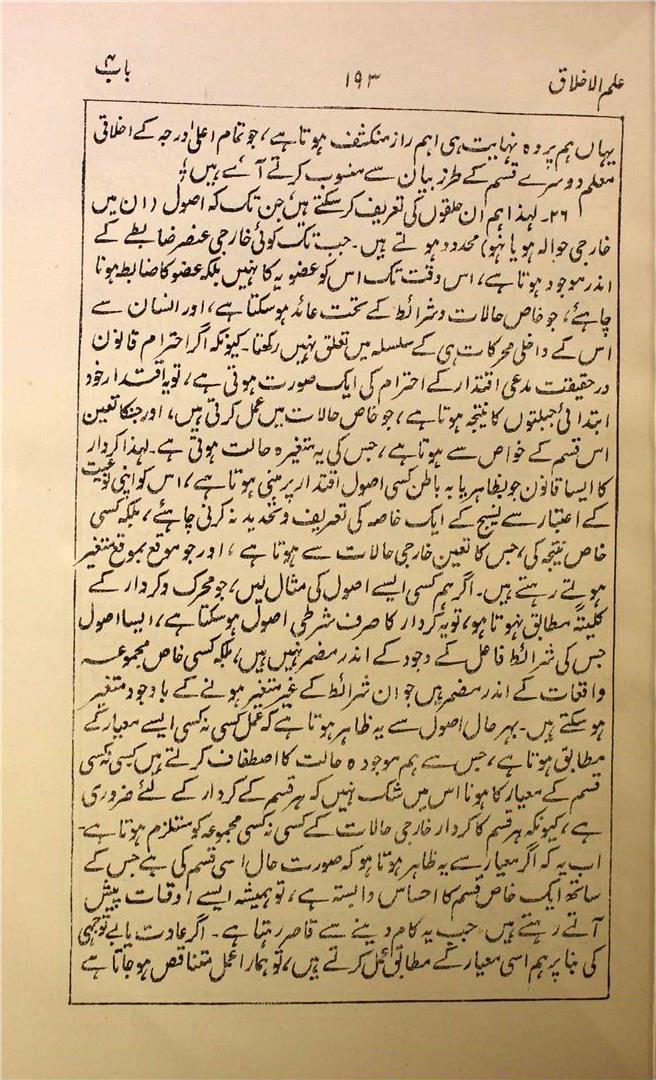 علم الاخلاق ۱۹۳ باب ۴
یہاں ہم پر وہ نہایت ہی اہم راز منکشف ہوتا ہے، جو تمام اعلیٰ درجہ کے اخلاقی
معلم دوسرے قسم کے طرز بیان سے منسوب کرتے آئے ہیں؛
۲۶۔ لہذا ہم ان حلقوں کی تعریف کر سکتے ہیں جن تک کہ اصول (ان میں
خارجی حوالہ ہو یا نہو) محدود ہوتے ہیں۔ جب تک کوئی خارجی عنصر ضابطے کے
اندر موجود ہوتا ہے، اس وقت تک اس کو عضویہ کا نہیں بلکہ عضو کا ضابطہ ہونا
چاہئے، جو خاص حالات و شرائط کے تحت عائد ہو سکتا ہے، اور انسان سے
اس کے داخلی محرکات ہی کے سلسلہ میں تعلق نہیں رکھتا۔ کیونکہ اگر احترام قانون
درحقیقت مدعی اقتدار کے احترام کی ایک صورت ہوتی ہے، تو یہ اقتدار خود
ابتدائی جبلتوں کا نتیجہ ہوتا ہے، جو خاص حالات میں عمل کرتی ہیں، اور جنکا تعین
اس قسم کے خواص سے ہوتا ہے، جس کی یہ متغیرہ حالت ہوتی ہے۔ لہذا کردار
کا ایسا قانون جو بظاہر یا بہ باطن کسی اصول اقتدار پر مبنی ہوتا ہے، اس کو اپنی نوعیت
کے اعتبار سے نسیج کے ایک خاصہ کی تعریف و تحدید نہ کرنی چاہئے، بلکہ کسی
خاص نتیجہ کی، جس کا تعین خارجی حالات سے ہوتا ہے، اور جو موقع بموقع متغیر
ہوتے رہتے ہیں۔ اگر ہم کسی ایسے اصول کی مثال لیں، جو محرک و کردار کے
کلیتہً مطابق نہوتا ہو، تو یہ کردار کا صرف شرطی اصول ہو سکتا ہے، ایسا اصول
جس کی شرائط فاعل کے وجود کے اندر مضمر نہیں ہیں، بلکہ کسی خاص مجموعہ
واقعات کے اندر مضمر ہیں جو ان شرائط کے غیر متغیر ہونے کے باوجود متغیر
ہو سکتے ہیں۔ بہر حال اصول سے یہ ظاہر ہوتا ہے کہ عمل کسی نہ کسی ایسے معیار کے
مطابق ہوتا ہے، جس سے ہم موجودہ حالت کا اصطفاف کرتے ہیں کسی نہ کسی
قسم کے معیار کا ہونا اس میں شک نہیں کہ ہر قسم کے کردار کے لئے ضروری
ہے، کیونکہ ہر قسم کا کردار خارجی حالات کے کسی نہ کسی مجموعہ کو مستلزم ہوتا ہے۔
اب یہ کہ اگر معیار سے یہ ظاہر ہوتا ہو کہ صورت حال اسی قسم کی ہے جس کے
ساتھ ایک خاص قسم کا احساس وابستہ ہے، تو ہمیشہ ایسے اوقات پیش
آتے رہتے ہیں جب یہ کام دینے سے قاصر رہتا ہے۔ اگر عادت یا بے توجہی
کی بنا پر ہم اسی معیار کے مطابق عمل کرتے ہیں، تو ہمارا عمل متناقص ہو جاتا ہے